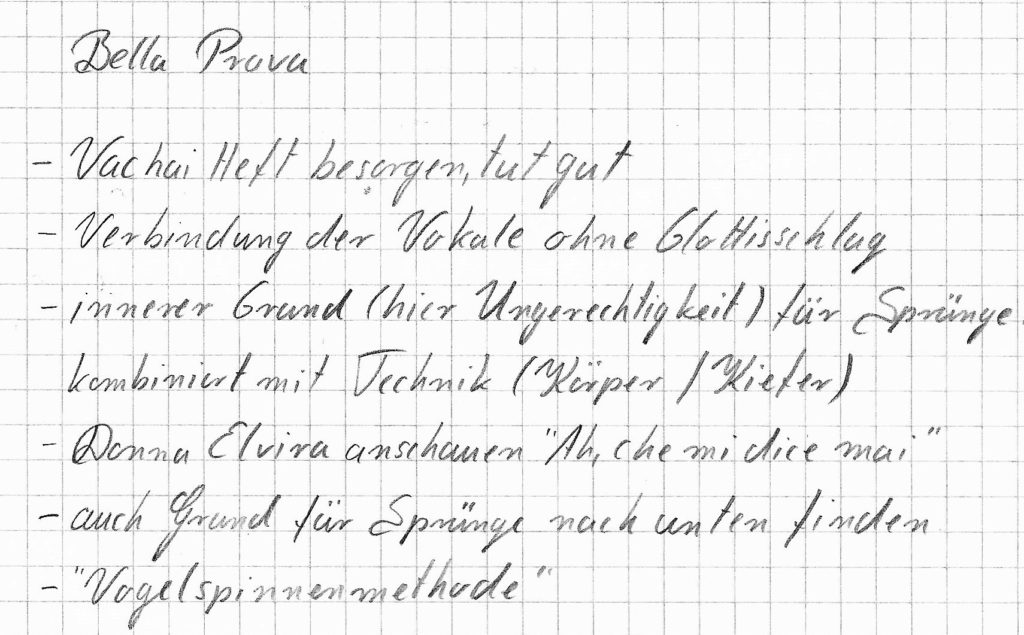 Bella Prova
- Vachai Heft besorgen, tut gut
- Verbindung der Vokale ohne Glottisschlag
- innerer Grund (hier Ungerechtigkeit) für Sprünge
kombiniert mit Technik (Körper / Kiefer)
- Donna Elvira anschauen "Ah, che mi dice mai"
- auch Grund für Sprünge nach unten finden
- "Vogelspinnenmethode"